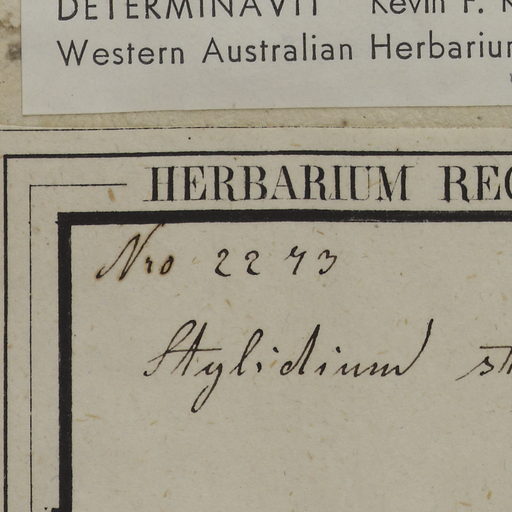 DETERMINAVIT Kevin F.
Western Australian Herbarium
HERBARIUM REG
Nro 2273
Stylidium st